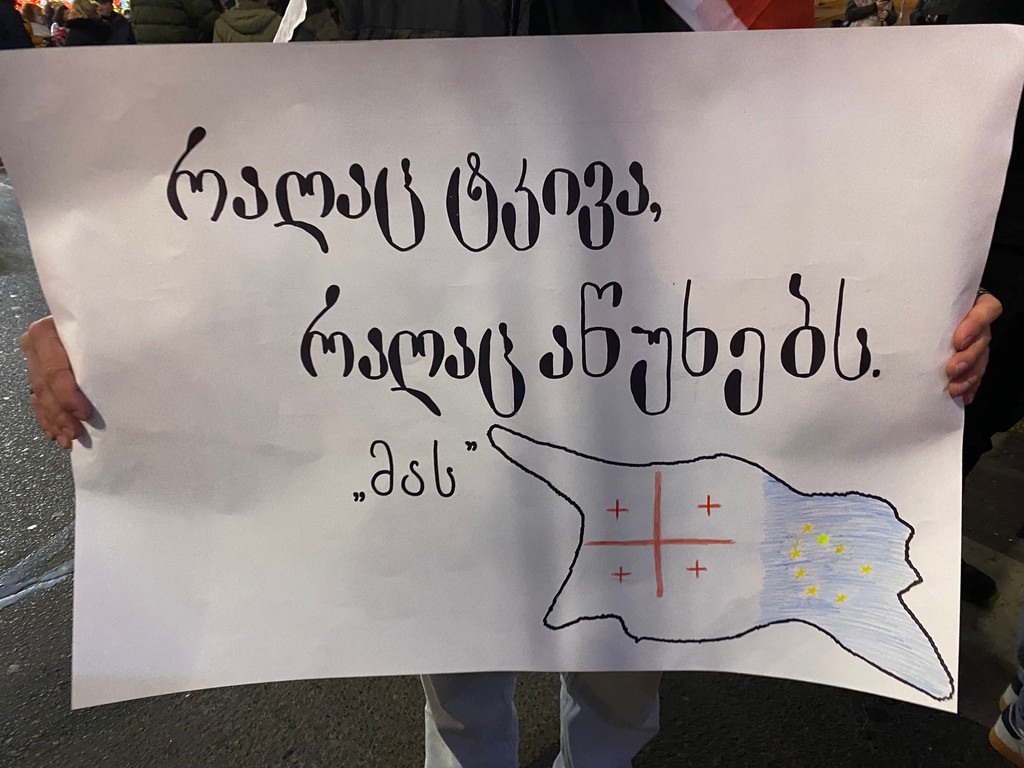 რაღაც ტკივა,
რაღაც აწუხებს.
„მას”